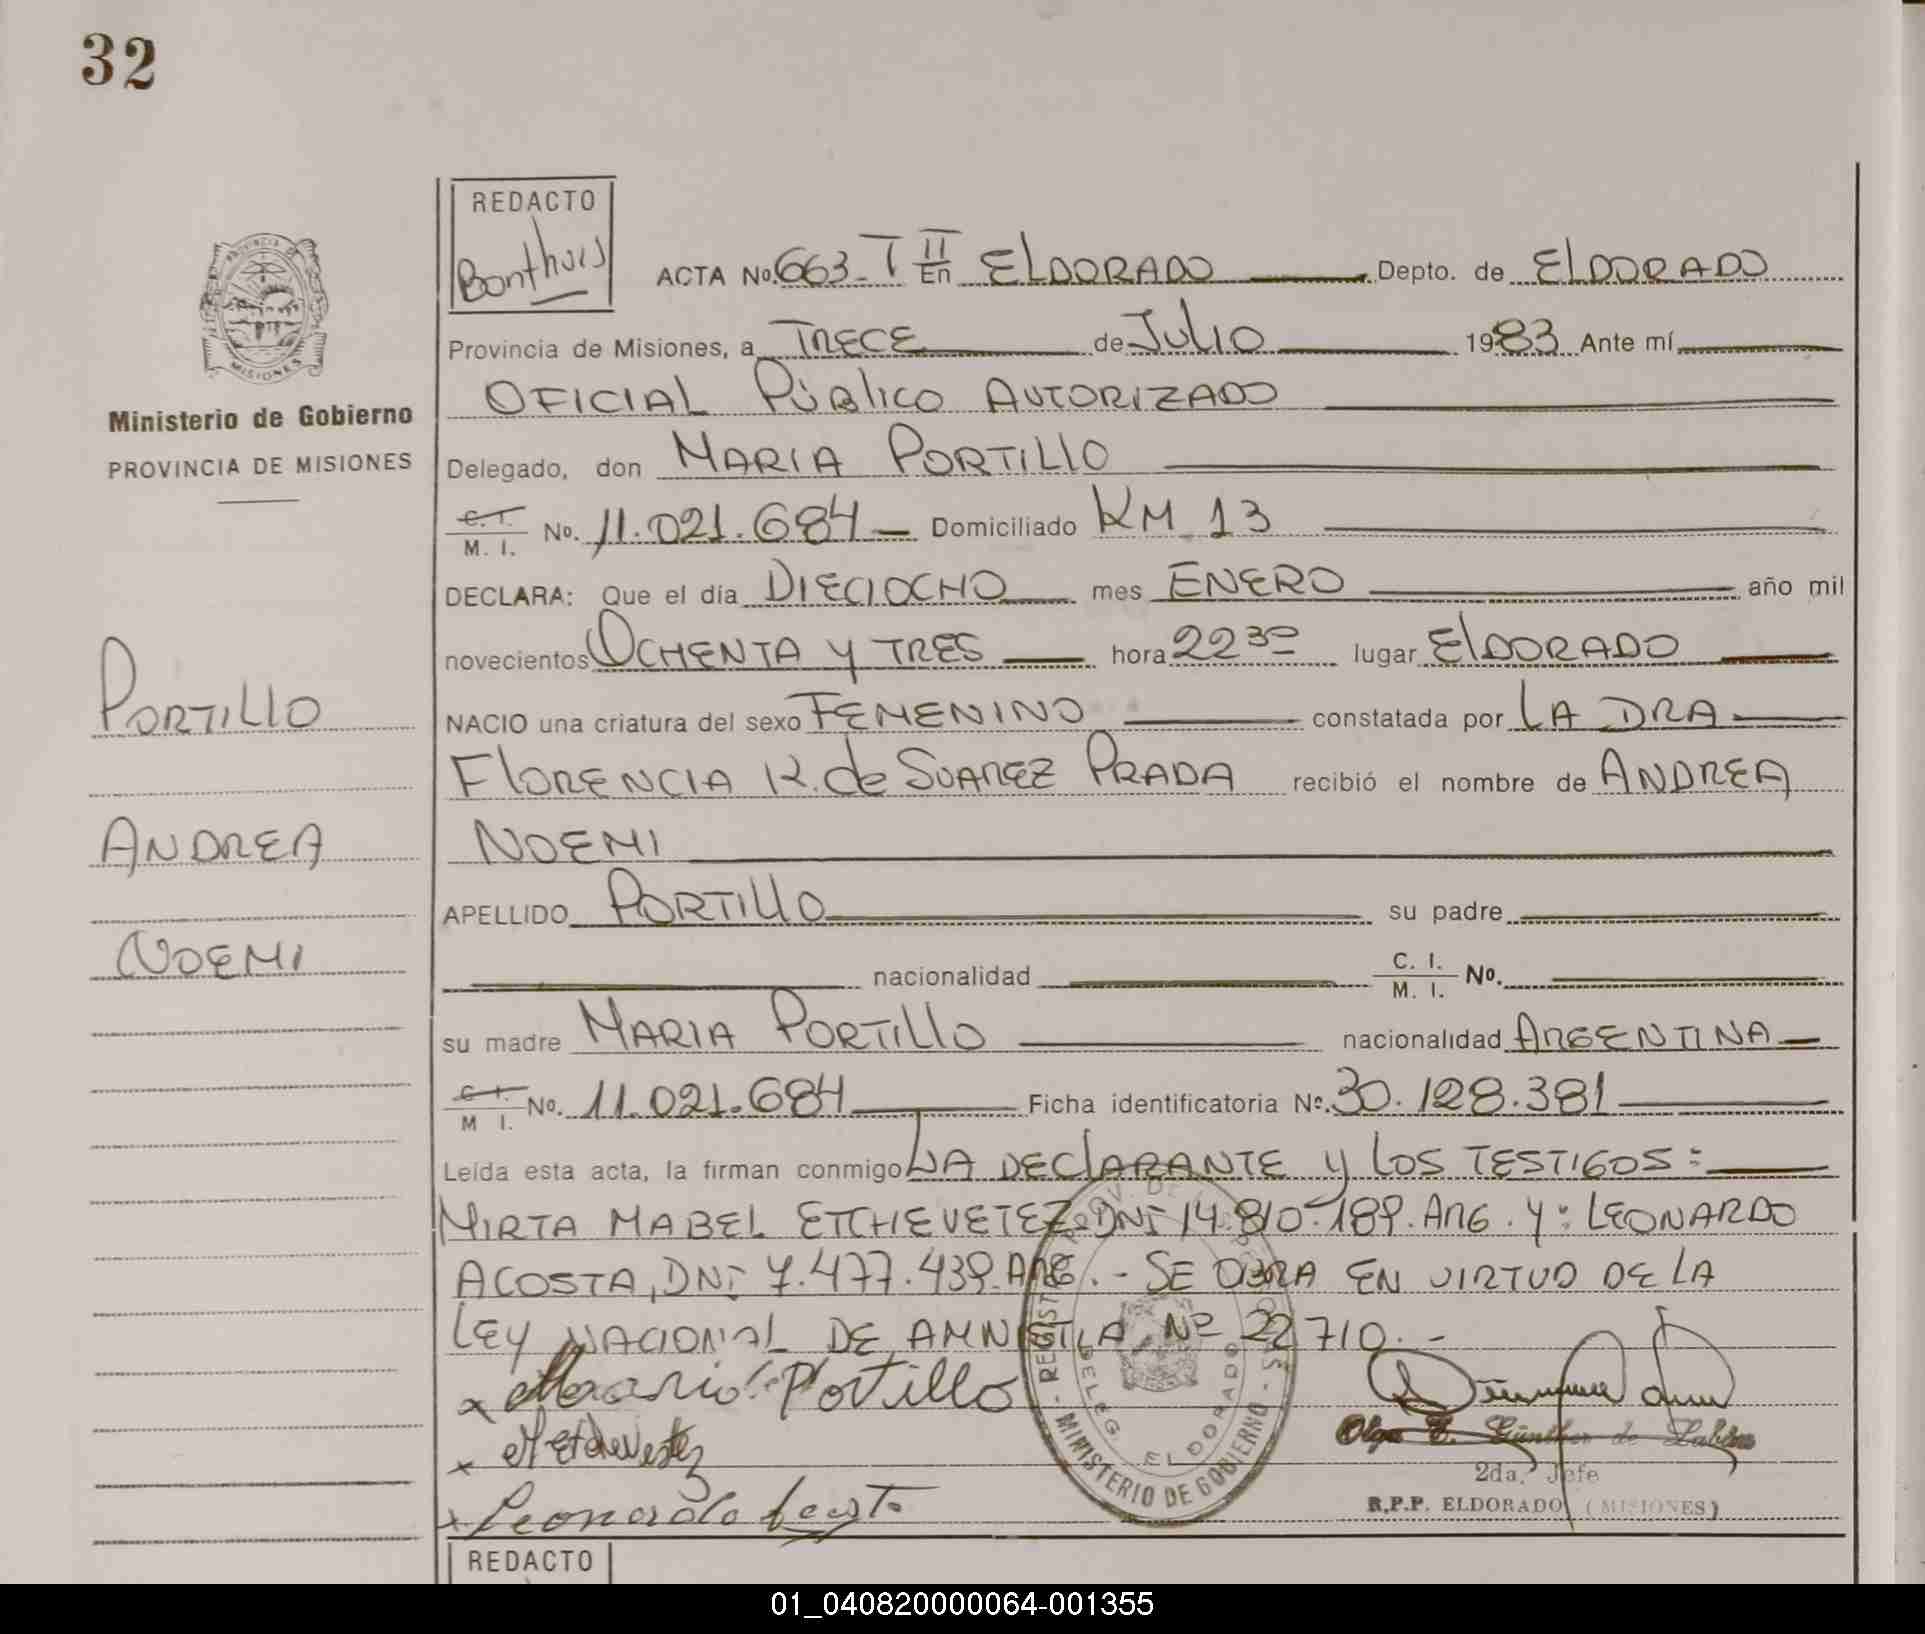 32
REDACTO
Bonthuis
ACTA No. 663 - T II En ELDORADO Depto. de ELDORADO
Provincia de Misiones, a TRECE de JULIO 1983 Ante mí
OFICIAL PÚBLICO AUTORIZADO
Ministerio de Gobierno
PROVINCIA DE MISIONES
Delegado, don MARIA PORTILLO
C. I. M. I. No. 11.021.684 - Domiciliado KM 13
DECLARA: Que el día DIECIOCHO mes ENERO año mil
novecientos OCHENTA Y TRES hora 22 30 lugar ELDORADO
PORTILLO
NACIO una criatura del sexo FEMENINO constatada por LA DRA
FLORENCIA K. de SUAREZ PRADA recibió el nombre de ANDREA
ANDREA
NOEMI
APELLIDO PORTILLO su padre
NOEMI
nacionalidad C. I. M. I. No.
su madre MARIA PORTILLO nacionalidad ARGENTINA
C. I. M I. No. 11.021.684 Ficha identificatoria Nº. 30.128.381
Leída esta acta, la firman conmigo LA DECLARANTE Y LOS TESTIGOS:
MIRTA MABEL ETCHEVETEZ. DNI 14.810.189. ARG. Y: LEONARDO
ACOSTA, DNI 7.477.439. ARG. - SE OBRA EN VIRTUD DE LA
LEY NACIONAL DE AMNISTIA Nº 22710. -
x Maria Portillo
x M Etchevetez
x Leonardo Acosta
MINISTERIO DE GOBIERNO
DELEG. ELDORADO
Olga E. Günther de
2da. Jefe
R.P.P. ELDORADO (MISIONES)
REDACTO
01_040820000064-001355